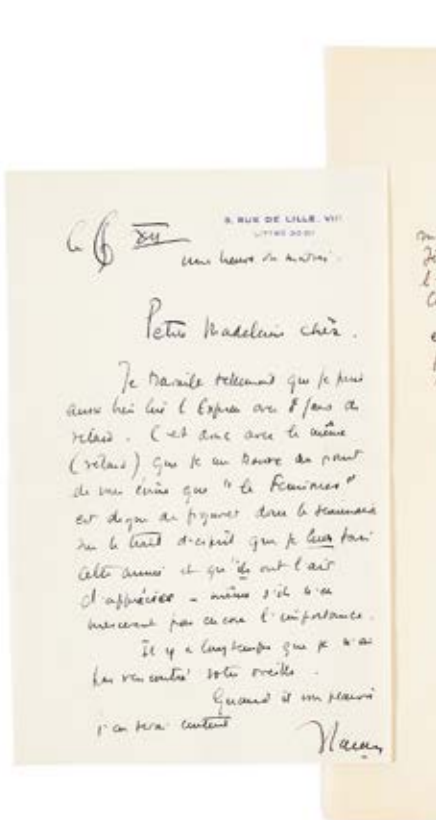 5, RUE DE LILLE. VII
LITTRÉ 30-01
le 6 XII
une heure du matin.
Petite Madeleine chérie.
Je travaille tellement que je puis
aussi bien lire l'Express avec 8 jours de
retard. C'est donc avec le même
(retard) que je me trouve au point
de vous écrire que "le Feminines"
est digne de figurer dans le séminaire
sur le trait d'esprit que je leur fais
cette année et qu'ils ont l'air
d'apprécier – même s'ils n'en
mesurent pas encore l'importance.
Il y a longtemps que je n'ai
pas rencontré votre oreille.
Quand il me
j'en serai content
JLacan